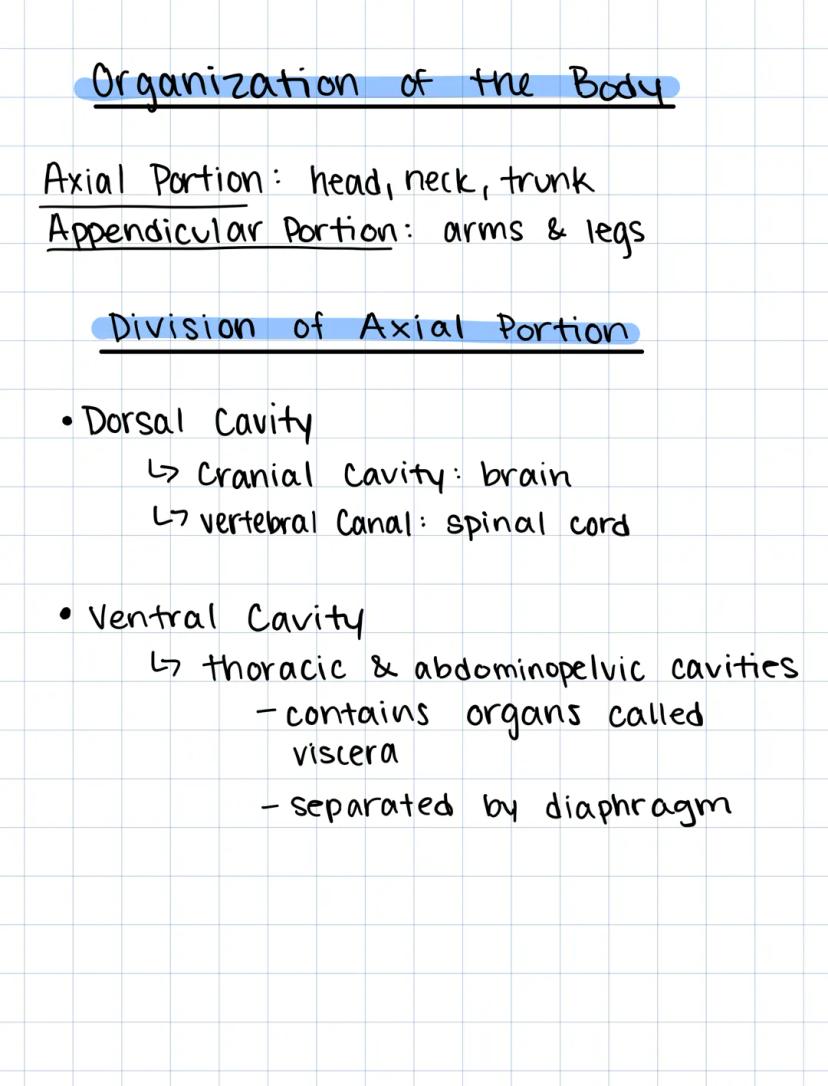 Organization of the Body
Axial Portion: head, neck, trunk
Appendicular Portion: arms & legs
Division of Axial Portion
• Dorsal Cavity
↳ Cranial Cavity: brain
↳ vertebral Canal: spinal cord
• Ventral Cavity
↳ thoracic & abdominopelvic cavities
- contains organs called
viscera
- separated by diaphragm